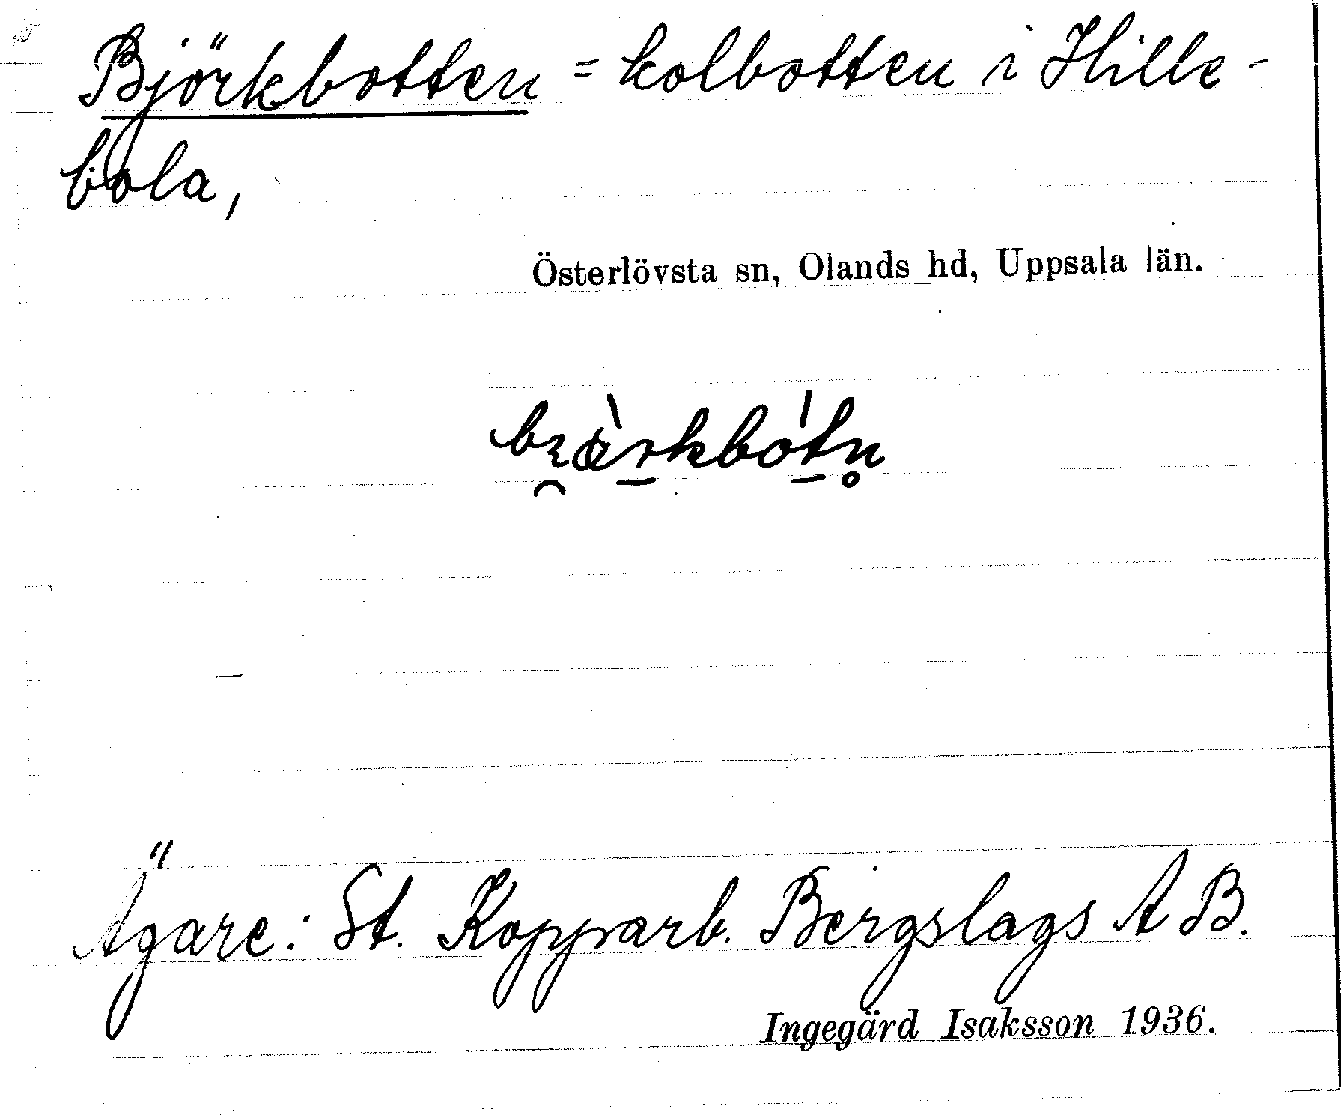 Björkbotten = kolbotten i Hille-
bola,
Österlövsta sn, Olands hd, Uppsala län.
Ägare: St. Kopparb. Bergslags AB.
Ingegärd Isaksson 1936.